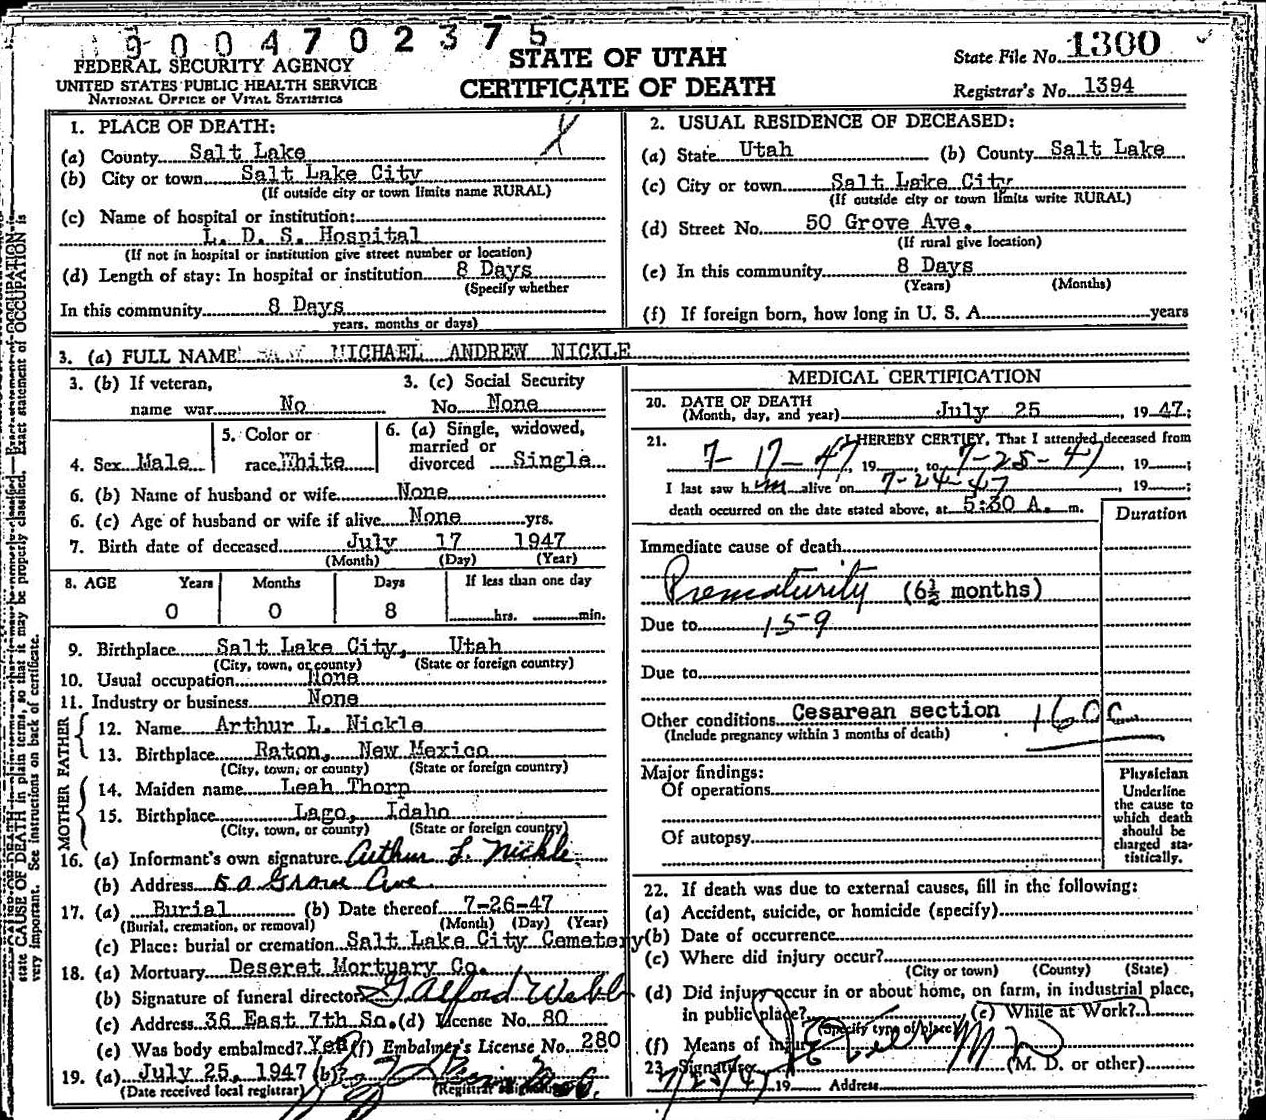 9 0 0 4 7 0 2 3 7 5
FEDERAL SECURITY AGENCY
UNITED STATES PUBLIC HEALTH SERVICE
NATIONAL OFFICE OF VITAL STATISTICS
STATE OF UTAH
CERTIFICATE OF DEATH
State File No. 1300
Registrar's No. 1394
1. PLACE OF DEATH:
(a) County Salt Lake
(b) City or town Salt Lake City
(If outside city or town limits name RURAL)
(c) Name of hospital or institution:
L. D. S. Hospital
(If not in hospital or institution give street number or location)
(d) Length of stay: In hospital or institution 8 Days
(Specify whether
In this community 8 Days
years, months or days)
2. USUAL RESIDENCE OF DECEASED:
(a) State Utah (b) County Salt Lake
(c) City or town Salt Lake City
(If outside city or town limits write RURAL)
(d) Street No. 50 Grove Ave.
(If rural give location)
(e) In this community 8 Days
(Years) (Months)
(f) If foreign born, how long in U. S. A. years
3. (a) FULL NAME MICHAEL ANDREW NICKLE
3. (b) If veteran, name war No
3. (c) Social Security No. None
4. Sex Male
5. Color or race White
6. (a) Single, widowed, married or divorced Single
6. (b) Name of husband or wife None
6. (c) Age of husband or wife if alive None yrs.
7. Birth date of deceased July 17 1947
(Month) (Day) (Year)
8. AGE Years Months Days If less than one day
0 0 8 hrs. min.
9. Birthplace Salt Lake City, Utah
(City, town, or county) (State or foreign country)
10. Usual occupation None
11. Industry or business None
FATHER
12. Name Arthur L. Nickle
13. Birthplace Raton, New Mexico
(City, town, or county) (State or foreign country)
MOTHER
14. Maiden name Leah Thorp
15. Birthplace Lago, Idaho
(City, town, or county) (State or foreign country)
16. (a) Informant's own signature Arthur L. Nickle
(b) Address 50 Grove Ave
17. (a) Burial (b) Date thereof 7-26-47
(Burial, cremation, or removal) (Month) (Day) (Year)
(c) Place: burial or cremation Salt Lake City Cemetery
18. (a) Mortuary Deseret Mortuary Co.
(b) Signature of funeral director G Alford Webb
(c) Address 36 East 7th So. (d) License No. 80
(e) Was body embalmed? Yes (f) Embalmer's License No. 280
19. (a) July 25, 1947 (b)
(Date received local registrar) (Registrar's signature)
MEDICAL CERTIFICATION
20. DATE OF DEATH
(Month, day, and year) July 25, 1947;
21. I HEREBY CERTIFY, That I attended deceased from
7-17-47, 19 , to 7-25-47, 19 ;
I last saw him alive on 7-24-47, 19 ;
death occurred on the date stated above, at 5:30 A. m.
Duration
Immediate cause of death
Prematurity (6½ months)
Due to 159
Due to
Other conditions Cesarean section 160c
(Include pregnancy within 3 months of death)
Major findings:
Of operations
Of autopsy
Physician
Underline
the cause to
which death
should be
charged sta-
tistically.
22. If death was due to external causes, fill in the following:
(a) Accident, suicide, or homicide (specify)
(b) Date of occurrence
(c) Where did injury occur?
(City or town) (County) (State)
(d) Did injury occur in or about home, on farm, in industrial place,
in public place? (e) While at Work?
(Specify type of place)
(f) Means of injury
23. Signature M D (M. D. or other)
7/25/47 19 Address
state CAUSE OF DEATH in plain terms, so that it may be properly classified. Exact statement of OCCUPATION is
very important. See instructions on back of certificate.